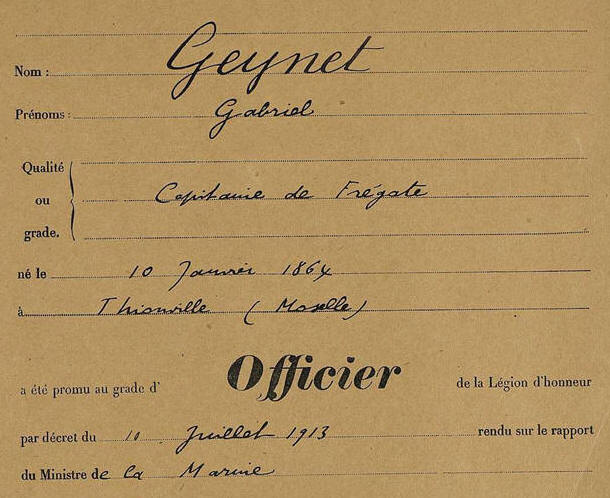 Nom : Geynet
Prénoms : Gabriel
Qualité
ou Capitaine de Frégate
grade.
né le 10 Janvier 1864
à Thionville (Moselle)
a été promu au grade d' Officier de la Légion d'honneur
par décret du 10 Juillet 1913 rendu sur le rapport
du Ministre de la Marine